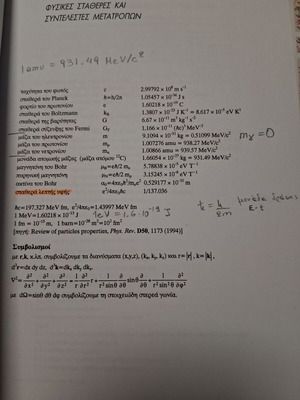 ΦΥΣΙΚΕΣ ΣΤΑΘΕΡΕΣ ΚΑΙ
ΣΥΝΤΕΛΕΣΤΕΣ ΜΕΤΑΤΡΟΠΩΝ
1amu = 931.49 MeV/c²
ταχύτητα του φωτός c 2.99792 × 10⁸ m s⁻¹
σταθερά του Planck ħ=h/2π 1.05457 × 10⁻³⁴ J s
φορτίο του πρωτονίου e 1.60218 × 10⁻¹⁹ C
σταθερά του Boltzmann k_B 1.3807 × 10⁻²³ J K⁻¹ = 8.617 × 10⁻⁵ eV K⁻¹
σταθερά της βαρύτητας G 6.67 × 10⁻¹¹ m³ kg⁻¹ s⁻²
σταθερά σύζευξης του Fermi G_F 1.166 × 10⁻¹¹ (ħc)³ MeV⁻²
μάζα του ηλεκτρονίου m 9.1094 × 10⁻³¹ kg = 0.51099 MeV/c²
μάζα του πρωτονίου m_p 1.007276 amu = 938.27 MeV/c²
μάζα του νετρονίου m_n 1.00866 amu = 939.57 MeV/c²
μονάδα ατομικής μάζας (μάζα ατόμου ¹²C) 1.66054 × 10⁻²⁷ kg = 931.49 MeV/c²
μαγνητόνη του Bohr μ_B=eħ/2 m_e 5.78838 × 10⁻⁵ eV T⁻¹
πυρηνική μαγνητόνη μ_N=eħ/2 m_p 3.15245 × 10⁻⁸ eV T⁻¹
ακτίνα του Bohr α₀=4πε₀ħ²/m_e e² 0.529177 × 10⁻¹⁰ m
σταθερά λεπτής υφής e²/4πε₀ħc 1/137.036
m_γ = 0
ħc=197.327 MeV fm, e²/4πε₀=1.43997 MeV fm
1 MeV=1.60218 × 10⁻¹³ J 1eV = 1.6·10⁻¹⁹ J
1 fm = 10⁻¹⁵ m, 1 barn=10⁻²⁸ m²=10² fm²
[πηγή: Review of particles properties, Phys. Rev. D50, 1173 (1994)]
ħ = h/2π
E·t
Συμβολισμοί
με r, k, κ.λπ. συμβολίζουμε τα διανύσματα (x,y,z), (kₓ, k_y, k_z) και r=|r|, k=|k|,
d³r=dx dy dz, d³k=dkₓ dk_y dk_z
∇²=∂²/∂x²+∂²/∂y²+∂²/∂z²=1/r ∂²/∂r² r+1/(r² sinθ) ∂/∂θ sinθ ∂/∂θ+1/(r² sin²θ) ∂²/∂φ²
με dΩ=sinθ dθ dφ συμβολίζουμε τη στοιχειώδη στερεά γωνία.